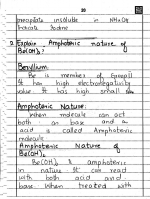 20
precipitate insoluble in NH4OH
indicate Iodine
2. Explain Amphoteric nature of
Be(OH)2.
Beryllium
Be is member of Group II
It has high electronegativity
value It has high small
Amphoteric Nature:
When molecule can act
both as base and a
acid is called Amphoteric
molecule
Amphoteric Nature of
Be(OH)2
Be(OH)2 is amphoteric
in nature It can read
with both acid and
base. When treated with